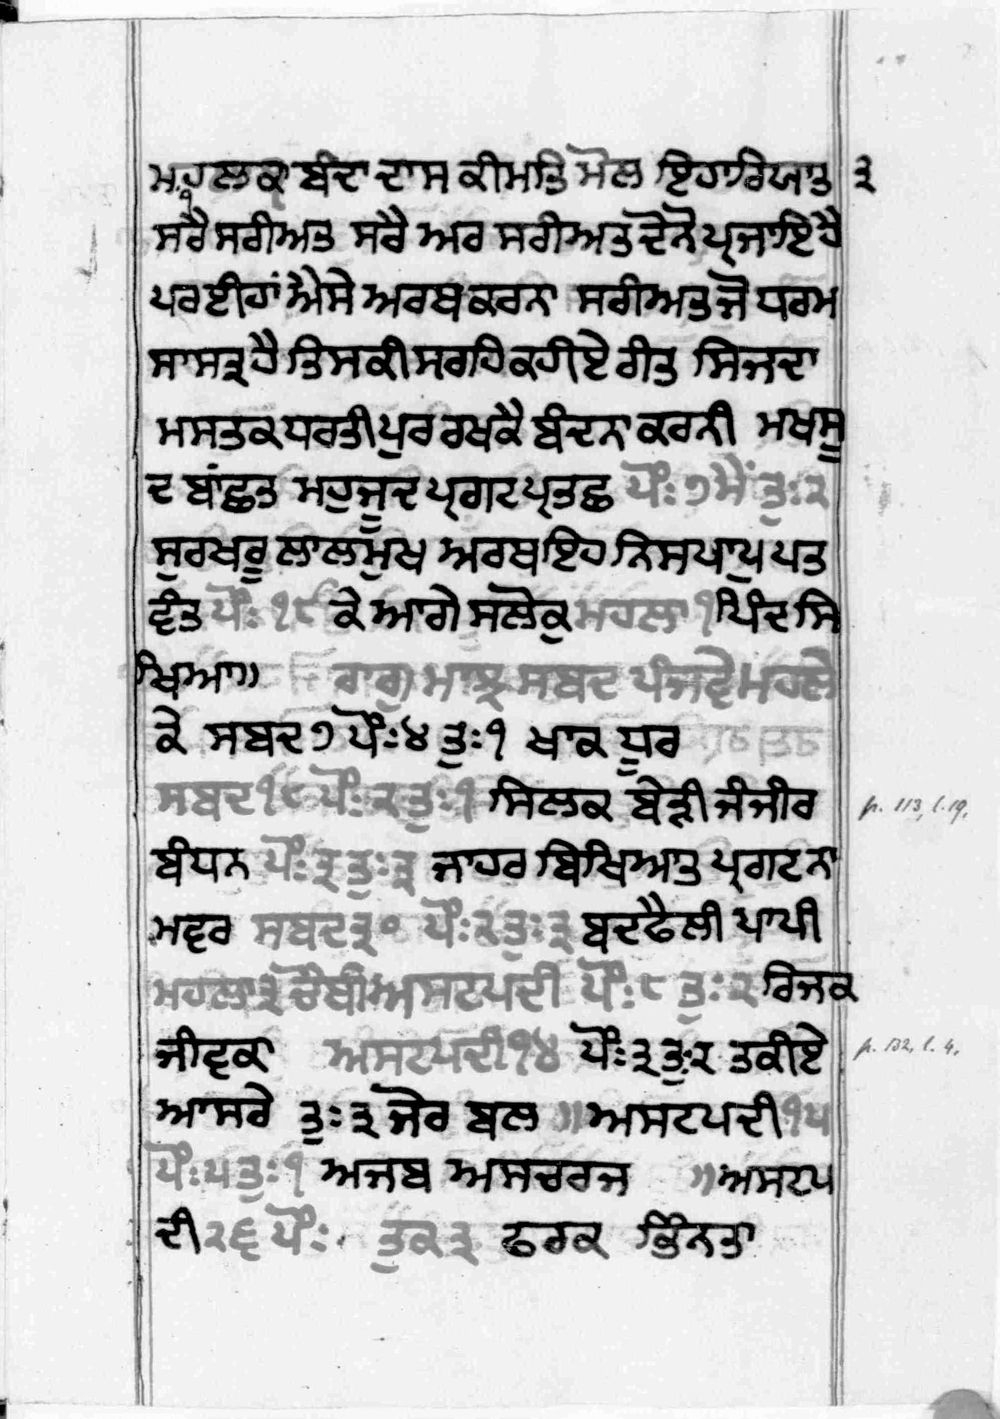 ਮਖਲੂਕਾ ਬੰਦਾ ਦਾਸ ਕੀਮਤਿ ਮੋਲ ਇਹਾਰਿਯਾਤ ੩
ਸਰੈ ਸਰੀਅਤ ਸਰੈ ਅਰ ਸਰੀਅਤ ਦੋਨੋ ਪ੍ਰਜਾਇ ਹੈ
ਪਰ ਈਹਾਂ ਐਸੇ ਅਰਥ ਕਰਨਾ ਸਰੀਅਤ ਜੋ ਧਰਮ
ਸਾਸਤ੍ਰ ਹੈ ਤਿਸਕੀ ਸਰਹਿ ਕਹੀਏ ਰੀਤ ਸਿਜਦਾ
ਮਸਤਕ ਧਰਤੀ ਪੁਰ ਰਖਕੈ ਬੰਦਨਾ ਕਰਨੀ ਮਖਸੂ
ਦ ਬਾਂਛਤ ਮਹੁਜੂਦ ਪ੍ਰਗਟ ਪ੍ਰਤਛ ਪੌਃ ੭ ਮੈਂ ਤੁਃ ੨
ਸੁਰਖਰੂ ਲਾਲ ਮੁਖ ਅਰਥ ਇਹ ਨਿਸਪਾਪੁ ਪਤ
ਵੰਤ ਪੌਃ ੧੮ ਕੇ ਆਗੇ ਸਲੋਕੁ ਮਹਲਾ ੧ ਪਿੰਦ ਸਿ
ਖਿਆ॥ ਰਾਗੁ ਮਾਝ ਸਬਦ ਪੰਜਵੇ ਮਹਲੇ
ਕੇ ਸਬਦ ੭ ਪੌਃ ੪ ਤੁਃ ੧ ਖਾਕ ਧੂਰ
ਸਬਦ ੧੮ ਪੌਃ ੨ ਤੁਃ ੧ ਸਿਲਕ ਬੇੜੀ ਜੰਜੀਰ
ਬੰਧਨ ਪੌਃ ੩ ਤੁਃ ੩ ਜਾਹਰ ਬਿਖਿਅਤ ਪ੍ਰਗਟ ਨਾ
ਮਵਰ ਸਬਦ ੩੦ ਪੌਃ ੨ ਤੁਃ ੩ ਬਦਫੈਲੀ ਪਾਪੀ
ਮਹਲਾ ੩ ਚੌਥੀ ਅਸਟਪਦੀ ਪੌਃ ੮ ਤੁਃ ੨ ਰਿਜਕ
ਜੀਵਕਾ ਅਸਟਪਦੀ ੧੪ ਪੌਃ ੩ ਤੁਃ ੨ ਤਕੀਏ
ਆਸਰੇ ਤੁਃ ੩ ਜੋਰ ਬਲ ॥ ਅਸਟਪਦੀ ੧੫
ਪੌਃ ੫ ਤੁਃ ੧ ਅਜਬ ਅਸਚਰਜ ॥ ਅਸਟਪ
ਦੀ ੨੬ ਪੌਃ ਤੁਕ ੩ ਫਰਕ ਭਿੰਨਤਾ
p. 113, l. 19.
p. 132, l. 4.